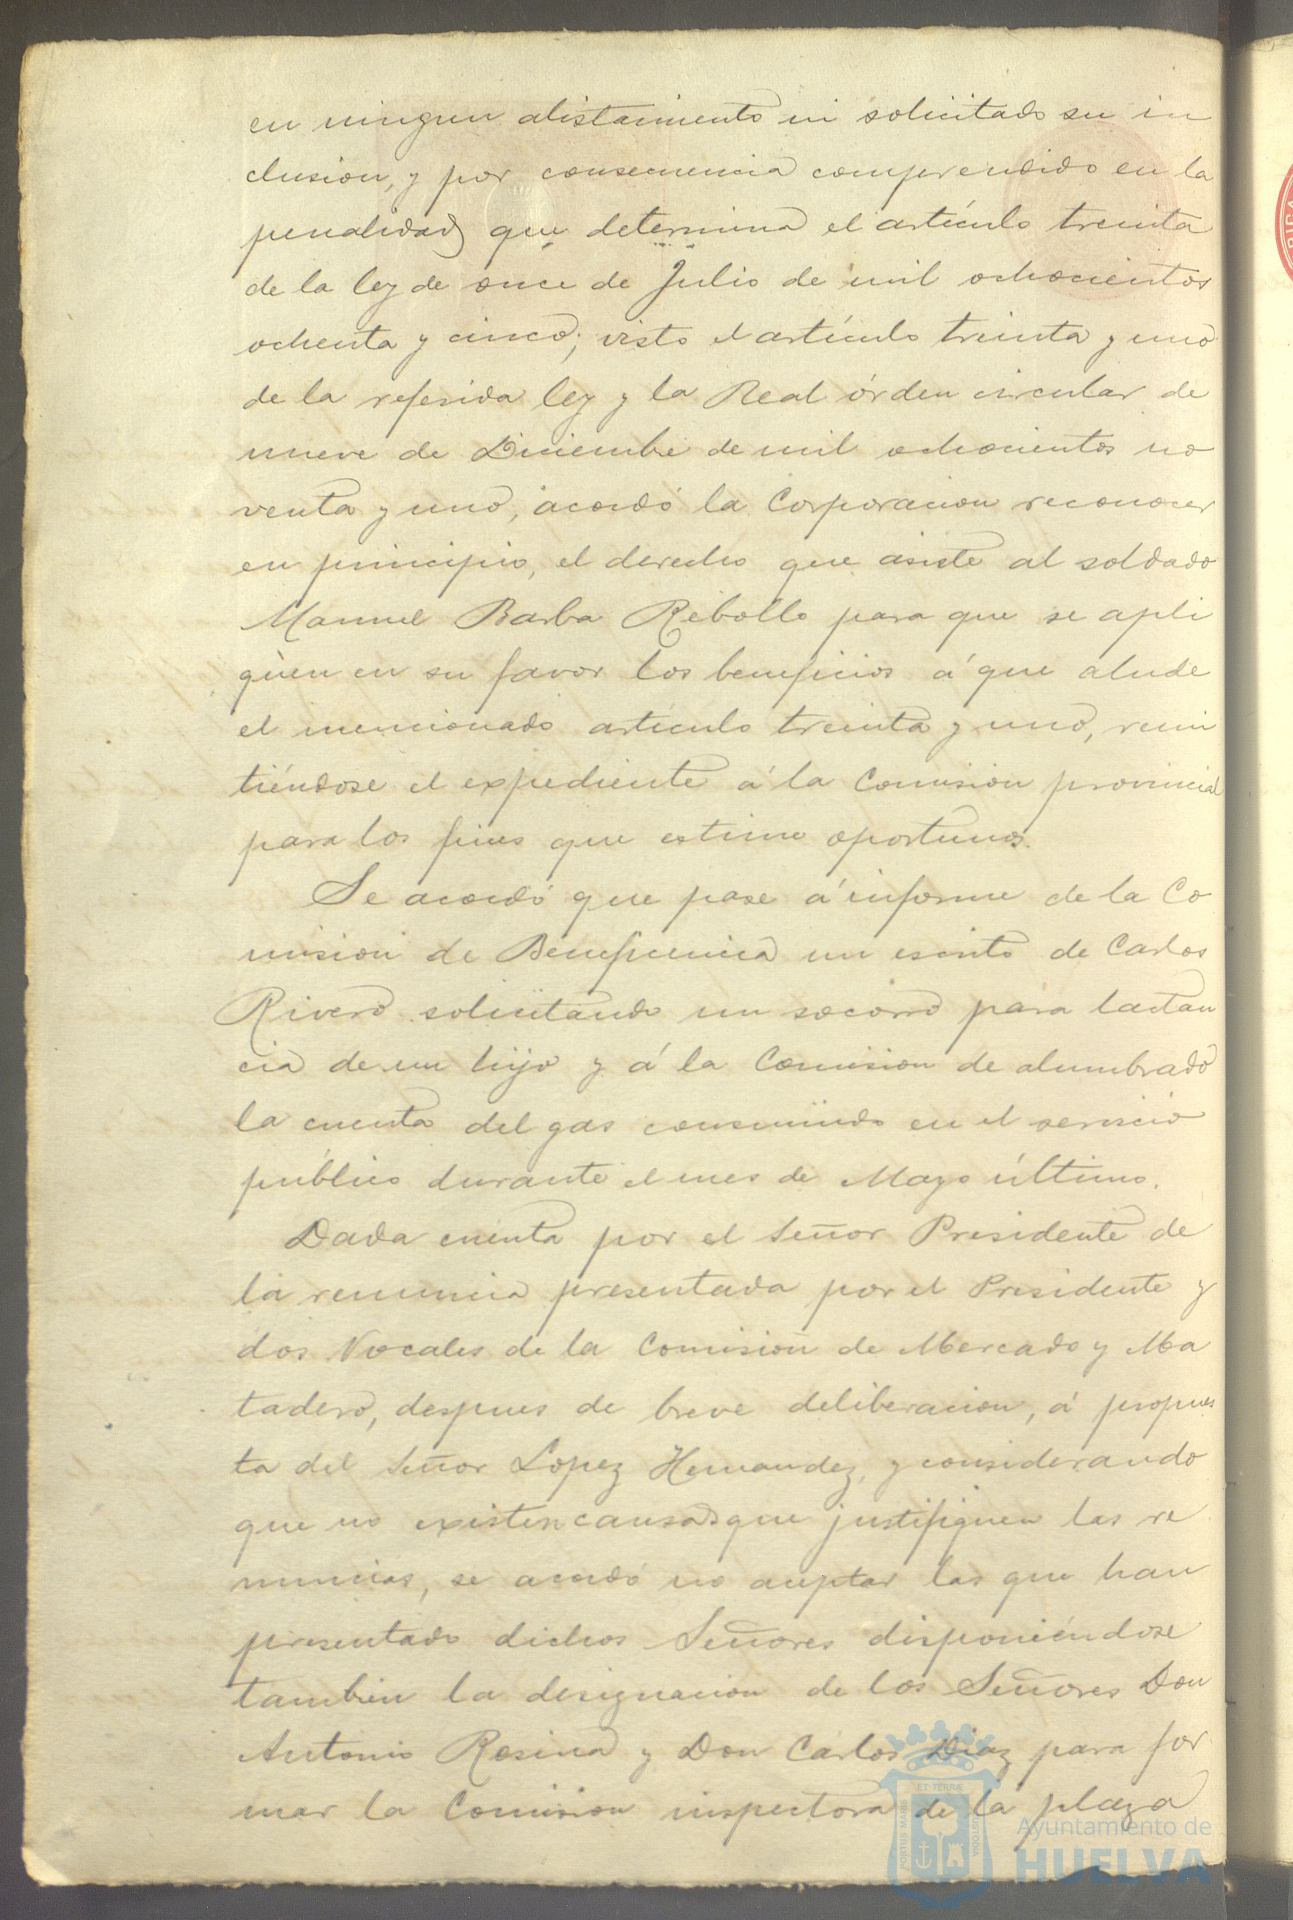 en ningun alistamiento ni solicitado su in
clusion, y por consecuencia comprendido en la
penalidad que determina el artículo treinta
de la ley de once de Julio de mil ochocientos
ochenta y cinco; visto el artículo treinta y uno
de la referida ley y la Real órden circular de
nueve de Diciembre de mil ochocientos no
venta y uno, acordó la Corporacion reconocer
en principio, el derecho que asiste al soldado
Manuel Barba Rebollo para que se apli
quen en su favor los beneficios á que alude
el mencionado artículo treinta y uno, remi
tiéndose el expediente á la Comision provincial
para los fines que estime oportunos.
Se acordó que pase á informe de la Co
mision de Beneficencia un escrito de Carlos
Rivero solicitando un socorro para lactan
cia de un hijo y á la Comision de alumbrado
la cuenta del gas consumido en el servicio
público durante el mes de Mayo último.
Dada cuenta por el Señor Presidente de
la renuncia presentada por el Presidente y
dos Vocales de la Comision de Mercado y Ma
tadero, despues de breve deliberacion, á propues
ta del Señor Lopez Hernandez, y considerando
que no existen causas que justifiquen las re
nuncias, se acordó no aceptar las que han
presentado dichos Señores disponiéndose
tambien la designacion de los Señores Don
Antonio Rosina y Don Carlos Diaz para for
mar la Comision inspectora de la plaza
PORTUS MARIS ET TERRÆ CUSTODIA
Ayuntamiento de
HUELVA